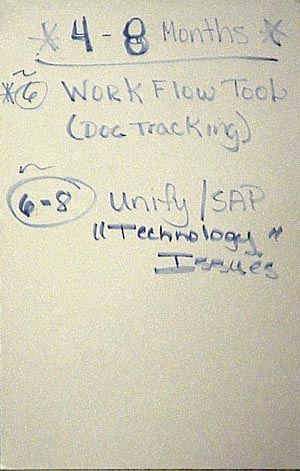 * 4 - 8 Months *
* ~ 6 Work Flow Tool
(Doc Tracking)
~ 6-8 Unify / SAP
"Technology"
Issues